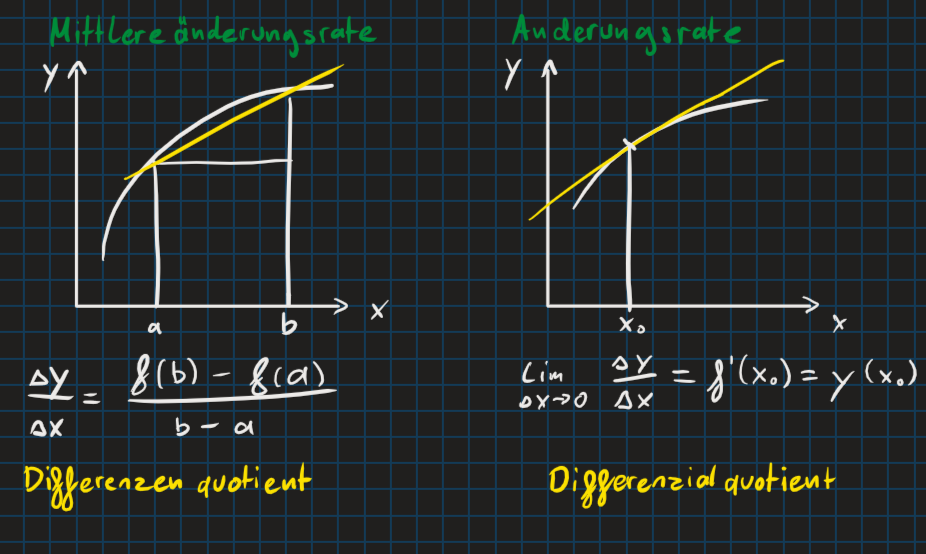 Mittlere änderungsrate
y
x
a b
Δy/Δx = f(b) - f(a) / b - a
Differenzen quotient
Anderungsrate
y
x₀ x
Lim Δx→0 Δy/Δx = f'(x₀) = y(x₀)
Differenzial quotient